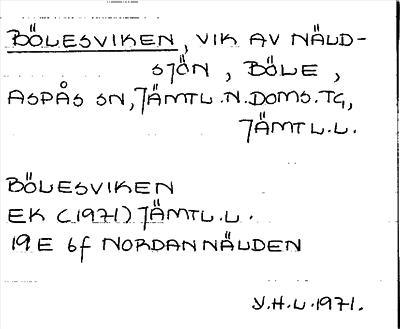 BÖLESVIKEN, VIK AV NÄLD-
SJÖN, BÖLE,
ASPÅS SN, JÄMTL.N.DOMS.TG,
JÄMTL.L.
BÖLESVIKEN
EK (1971) JÄMTL.L.
19E 6f NORDANNÄLDEN
V.H.L.1971.